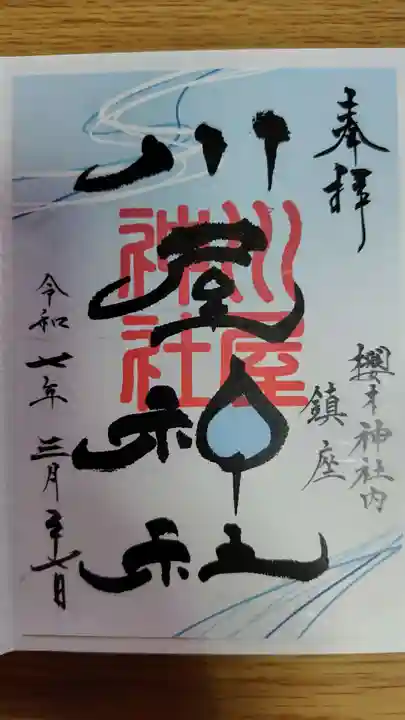 奉拝
櫻木神社内
鎮座
川屋神社
川屋神社
令和七年三月二十七日